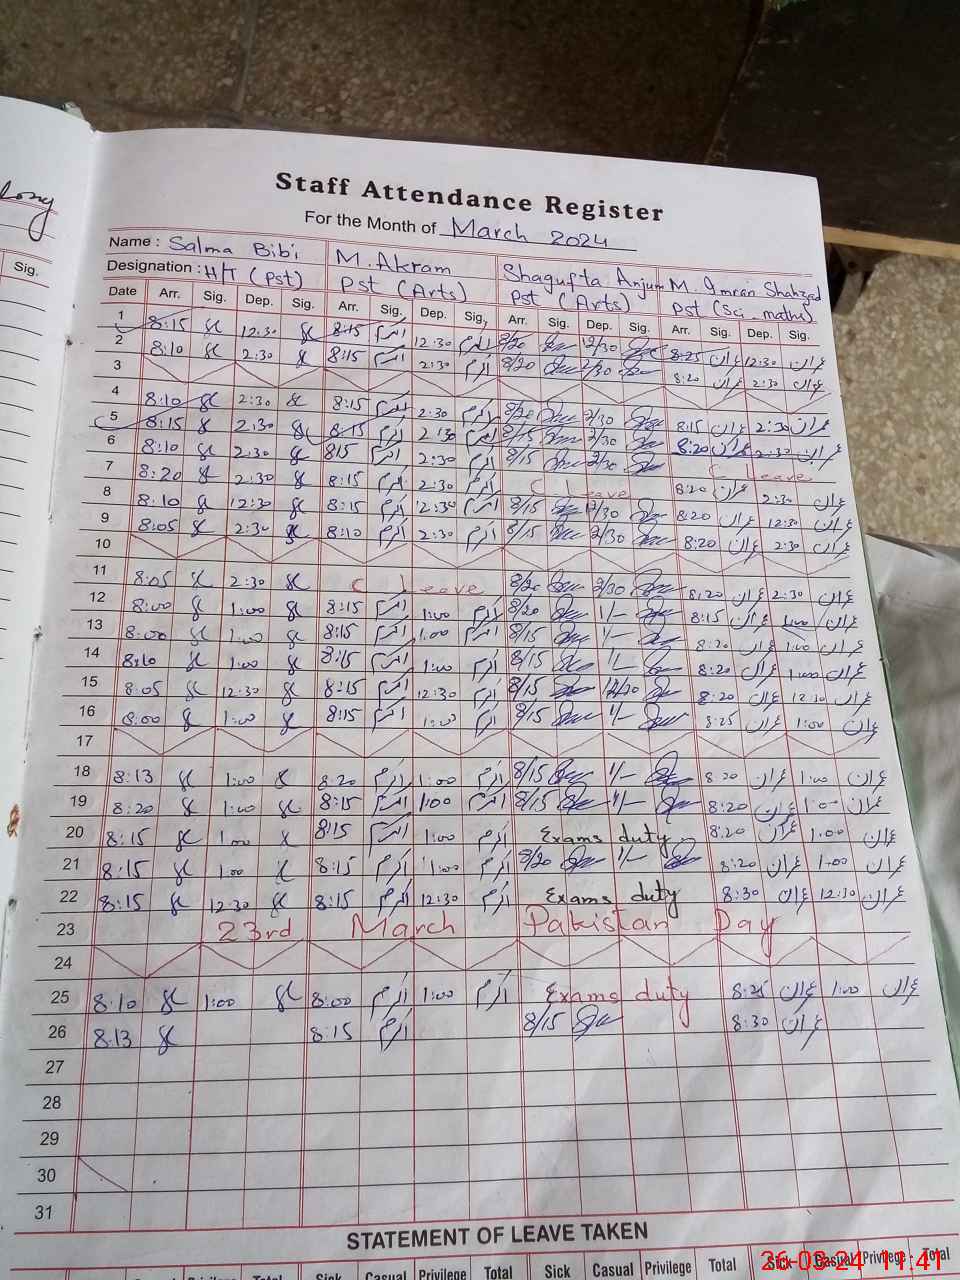 Staff Attendance Register
For the Month of March 2024
Sig.
Name : Salma Bibi M. Akram Shagufta Anjum M. Imran Shahzad
Designation : H/T (Pst) Pst (Arts) Pst (Arts) Pst (Sci - maths)
Date Arr. Sig. Dep. Sig. Arr. Sig. Dep. Sig. Arr. Sig. Dep. Sig. Arr. Sig. Dep. Sig.
1 8:15 12:30 8:15 اکرم 12:30 اکرم 8/20 12/30 8:25 عمران 12:30 عمران
2 8:10 2:30 8:15 اکرم 2:30 اکرم 8/20 2/30 8:20 عمران 2:30 عمران
3
4 8:10 2:30 8:15 اکرم 2:30 اکرم 8/20 2/30 8:15 عمران 2:30 عمران
5 8:15 2:30 8:15 اکرم 2:30 اکرم 8/15 2/30 8:20 عمران 2:30 عمران
6 8:10 2:30 8:15 اکرم 2:30 اکرم 8/15 2/30 C. Leave
7 8:20 2:30 8:15 اکرم 2:30 اکرم C. Leave 8:20 عمران 2:30 عمران
8 8:10 12:30 8:15 اکرم 12:30 اکرم 8/15 12/30 8:20 عمران 12:30 عمران
9 8:05 2:30 8:10 اکرم 2:30 اکرم 8/15 2/30 8:20 عمران 2:30 عمران
10
11 8:05 2:30 C Leave 8/20 2/30 8:20 عمران 2:30 عمران
12 8:00 1:00 8:15 اکرم 1:00 اکرم 8/20 1/- 8:15 عمران 1:00 عمران
13 8:00 1:00 8:15 اکرم 1:00 اکرم 8/15 1/- 8:20 عمران 1:00 عمران
14 8:10 1:00 8:15 اکرم 1:00 اکرم 8/15 1/- 8:20 عمران 1:00 عمران
15 8:05 12:30 8:15 اکرم 12:30 اکرم 8/15 12/30 8:20 عمران 12:30 عمران
16 8:00 1:00 8:15 اکرم 1:00 اکرم 8/15 1/- 8:25 عمران 1:00 عمران
17
18 8:13 1:00 8:20 اکرم 1:00 اکرم 8/15 1/- 8:20 عمران 1:00 عمران
19 8:20 1:00 8:15 اکرم 1:00 اکرم 8/15 1/- 8:20 عمران 1:00 عمران
20 8:15 1:00 8:15 اکرم 1:00 اکرم Exams duty 8:20 عمران 1:00 عمران
21 8:15 1:00 8:15 اکرم 1:00 اکرم 8/20 1/- 8:20 عمران 1:00 عمران
22 8:15 12:30 8:15 اکرم 12:30 اکرم Exams duty 8:30 عمران 12:30 عمران
23 23rd March Pakistan Day
24
25 8:10 1:00 8:00 اکرم 1:00 اکرم Exams duty 8:25 عمران 1:00 عمران
26 8:13 8:15 اکرم 8/15 8:30 عمران
27
28
29
30
31
STATEMENT OF LEAVE TAKEN
Sick Casual Privilege Total Sick Casual Privilege Total Sick Casual Privilege Total
26-03-24 11:41